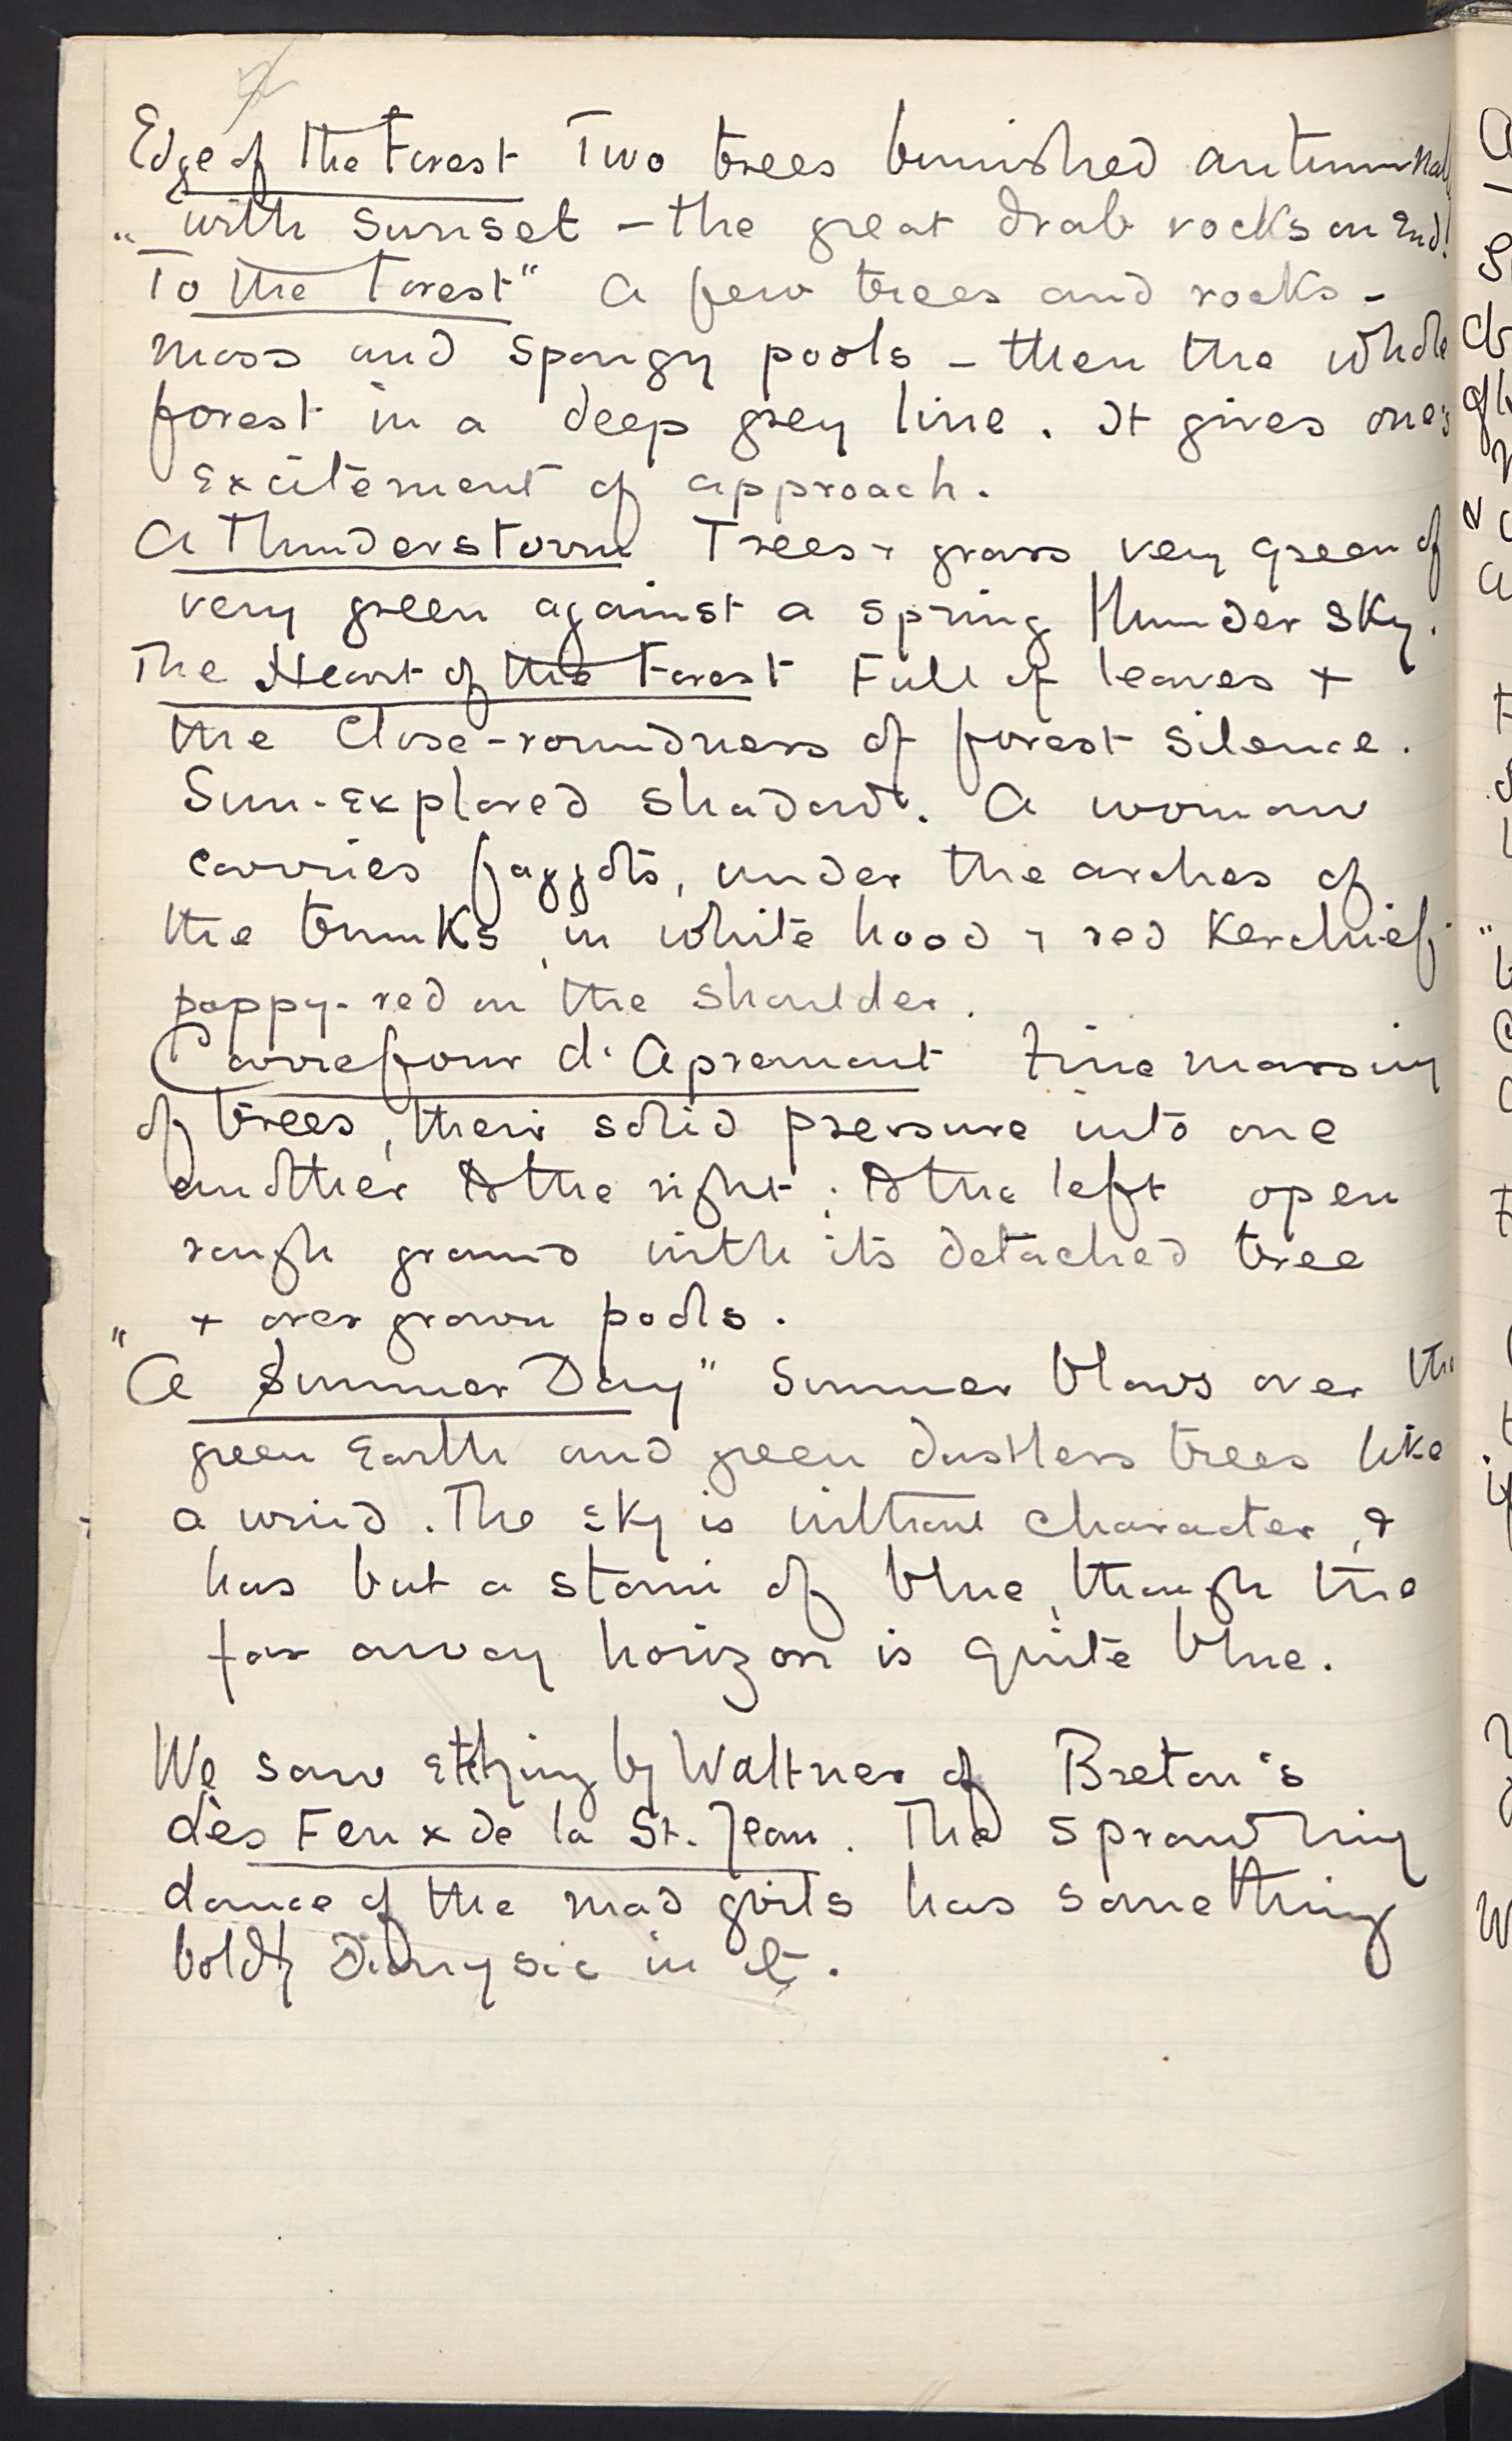 Edge of the Forest Two trees burnished autumnal
with sunset – the great drab rocks on End!
"To the Forest" A few trees and rocks –
moss and spongy pools – then the whole
forest in a deep grey line. It gives one's
Excitement of approach.
A Thunderstorm Trees & grass very green of
very green against a spring thunder sky.
The Heart of the Forest Full of leaves +
the Close-roundness of forest silence.
Sun-Explored shadow. A woman
carries faggots, under the arches of
the trunks, in white hood & red Kerchief
poppy-red on the shoulder.
Carrefour d'Apremont Fine massing
of trees, their solid pressure into one
another to the right; to the left open
rough ground with its detached tree
+ over grown pools.
"A Summer Day" Summer blows over the
green Earth and green dustless trees like
a wind. The sky is without character, &
has but a stain of blue, though the
far away horizon is quite blue.
We saw Etching by Waltner of Breton's
dès Feux de la St. Jean. The sprawling
dance of the mad girls has something
boldly Dionysic in it.